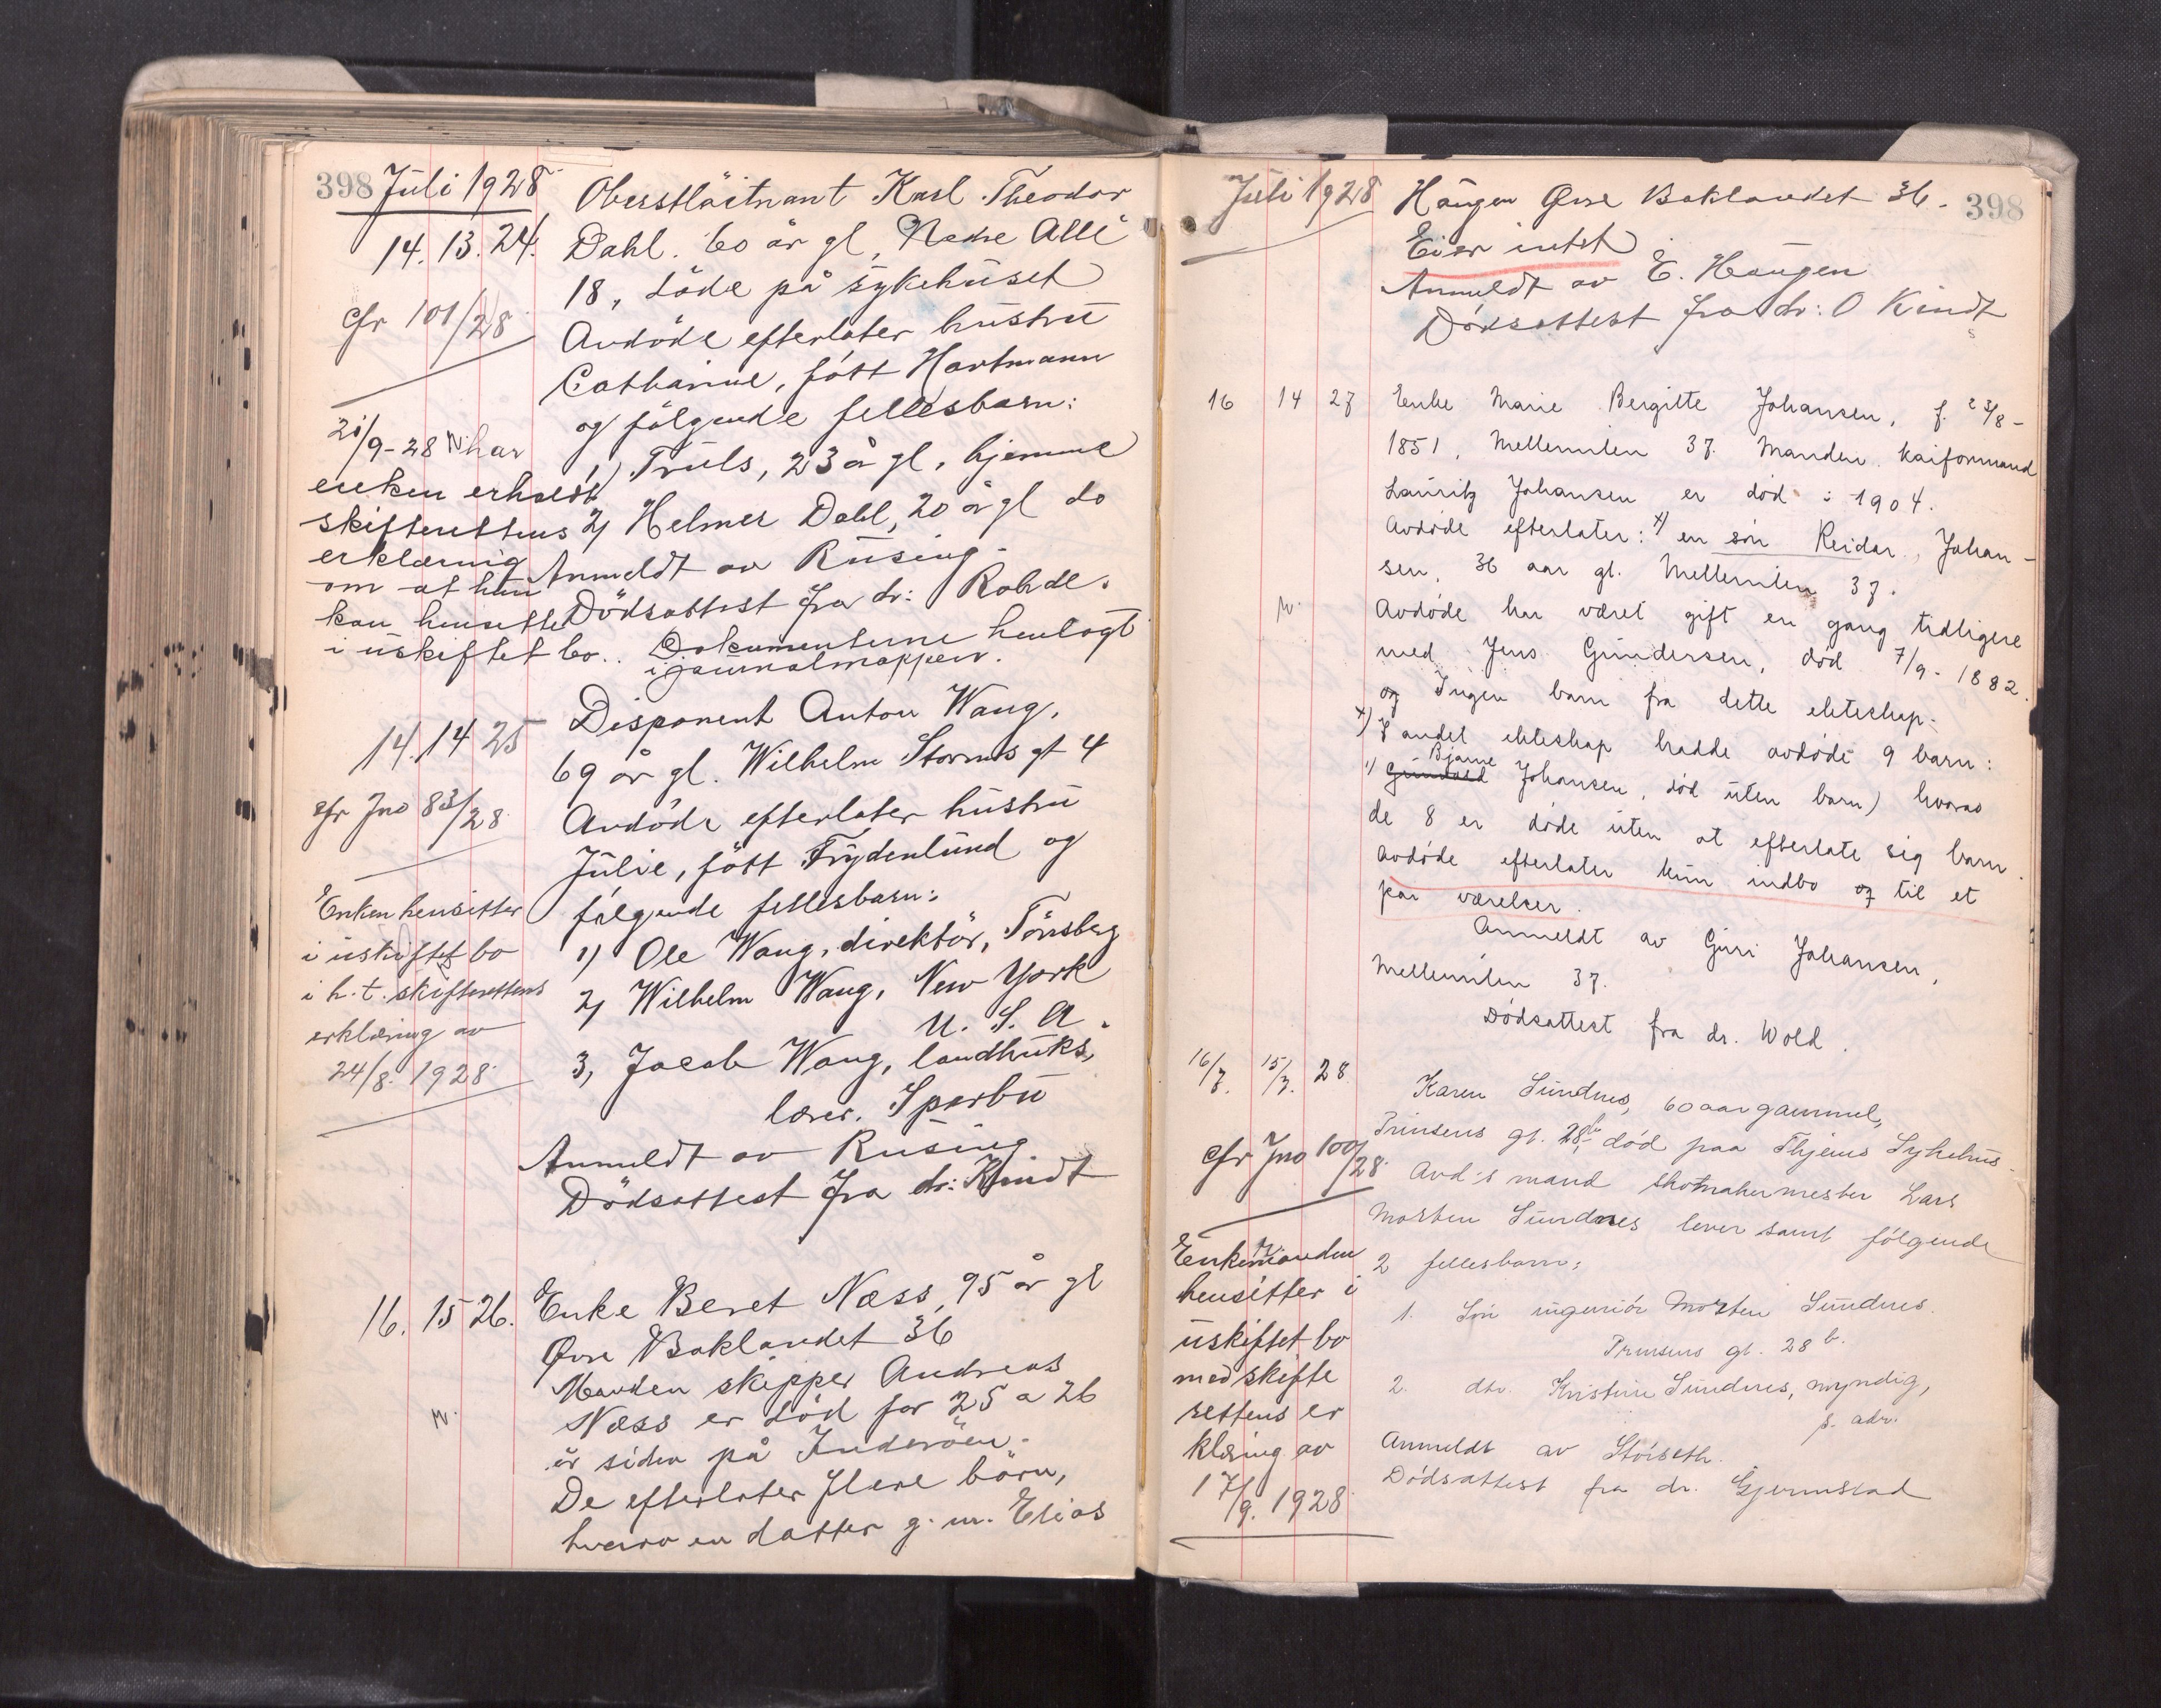 398 Juli 1928
14. 13. 24.
cfr 101/28
Oberstløitnant Karl Theodor
Dahl. 60 år gl, Nedre Allé
18, døde på sykehuset
Avdøde efterlater hustru
Catharine, født Hartmann
og følgende fellesbarn:
1) Truls, 23 år gl, hjemme
2) Helmer Dahl, 20 år gl do
Anmeldt av Rusing.
Dødsattest fra dr: Rohde.
Dokumenterne henlagt
i journalmappen.
21/9-28 har
enken erholdt
skifterettens
erklæring
om at hun
kan hensitte
i uskiftet bo.
14. 14 25
cfr Jno 83/28
Disponent Anton Wang,
69 år gl. Wilhelm Storms gt 4
Avdøde efterlater hustru
Julie, født Frydenlund og
følgende fellesbarn:
1) Ole Wang, direktør, Tønsberg
2) Wilhelm Wang, New York
U. S. A.
3, Jacob Wang, landbruks,
lærer. Sparbu
Anmeldt av Rusing
Dødsattest fra dr: Kindt
Enken hensitter
i uskiftet bo
i h. t. skifterettens
erklæring av
24/8. 1928
16. 15 26.
N.
Enke Beret Næss, 95 år gl
Øvre Baklandet 36
Manden skipper Andreas
Næss er død for 25 a 26
år siden på Inderøen.
De efterlater flere børn,
hvorav en datter g. m. Elias
Juli 1928
398
Haugen Øvre Baklandet 36.
Eier intet
Anmeldt av E. Haugen
Dødsattest fra dr: O Kindt
16 14 27
N.
Enke Marie Bergitte Johansen, f. 23/8-
1851, Mellemilen 37. Manden kaiformand
Lauritz Johansen er død i 1904.
Avdøde efterlater: x) en søn Reidar Johan-
sen, 36 aar gl. Mellemilen 37.
Avdøde har været gift en gang tidligere
med Jens Gundersen, død 7/9-1882.
og Ingen barn fra dette ekteskap.
x) I andet ekteskap hadde avdøde 9 barn:
Bjarne
1) Johansen, død uten barn) hvorav
de 8 er døde uten at efterlate sig barn.
Avdøde efterlater kun indbo og til et
par værelser.
Anmeldt av Guri Johansen,
Mellemilen 37.
Dødsattest fra dr. Wold.
16/7. 15/7. 28
cfr Jno 100/28
Karen Sundnes, 60 aar gammel,
Prinsens gt. 28b, død paa Thjems Sykehus.
Avd's mand skomakermester Lars
Morten Sundnes lever samt følgende
2 fellesbarn:
1. Søn ingeniør Morten Sundnes.
Prinsens gt. 28 b.
2. dtr. Kristine Sundnes, myndig,
s. adr.
Anmeldt av Støiseth.
Dødsattest fra dr. Gjermstad
Enkemanden
hensitter i
uskiftet bo
med skifte
rettens er
klæring av
17/9. 1928